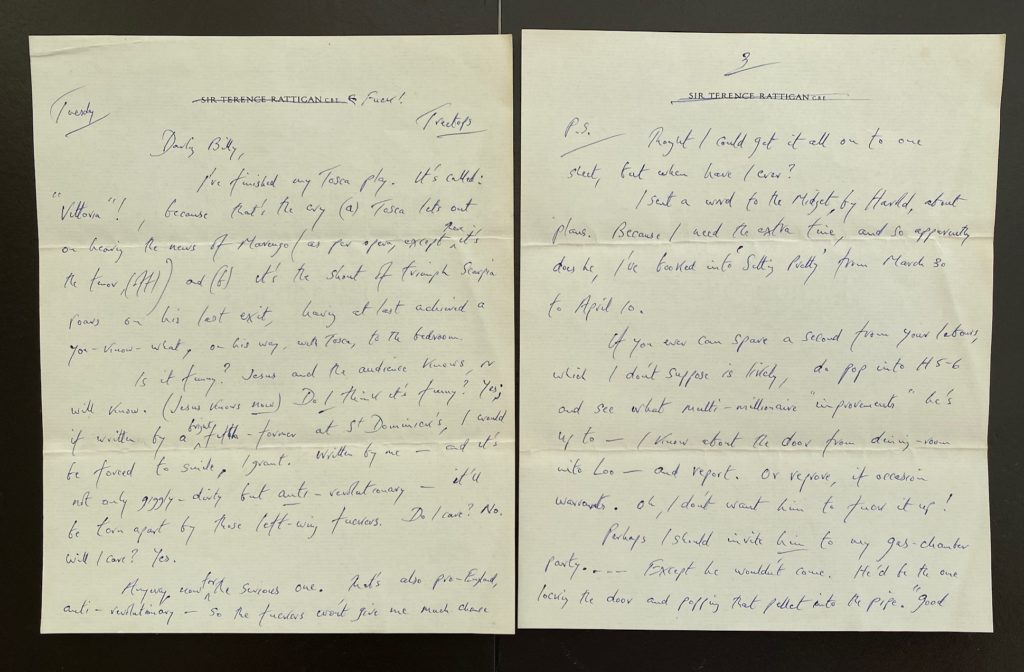 Tuesday
SIR TERENCE RATTIGAN CBE Fuck!
Treetops
Darling Billy,
I've finished my Tosca play. It's called:
"Vittoria"!, because that's the cry (a) Tosca lets out
on hearing the news of Marengo (as per opera, except there it's
the tenor) and (b) it's the shout of triumph Scarpia
roars on his last exit, having at last achieved a
you-know-what, on his way, with Tosca, to the bedroom.
Is it funny? Jesus and the audience knows, or
will know. (Jesus knows now) Do I think it's funny? Yes;
if written by a bright fifth-former at St Dominick's, I would
be forced to smile, I grant. Written by me — and it's
not only giggly-dirty but anti-revolutionary — it'll
be torn apart by those left-wing fuckers. Do I care? No.
Will I care? Yes.
Anyway, now for the serious one. That's also pro-England,
anti-revolutionary — so the fuckers won't give me much chance
3
SIR TERENCE RATTIGAN CBE
P.S. Thought I could get it all on to one
sheet, but when have I ever?
I sent a word to the Midget, by Harold, about
plans. Because I need the extra time, and so apparently
does he, I've booked into "Sitting Pretty" from March 30
to April 10.
If you ever can spare a second from your labours,
which I don't suppose is likely, do pop into H 5-6
and see what multi-millionaire "improvements" he's
up to — I know about the door from dining-room
into Loo — and report. Or reprove, if occasion
warrants. Oh, I don't want him to fuck it up!
Perhaps I should invite him to my gas-chamber
party.---- Except he wouldn't come. He'd be the one
locking the door and popping that pellet into the pipe. "Good